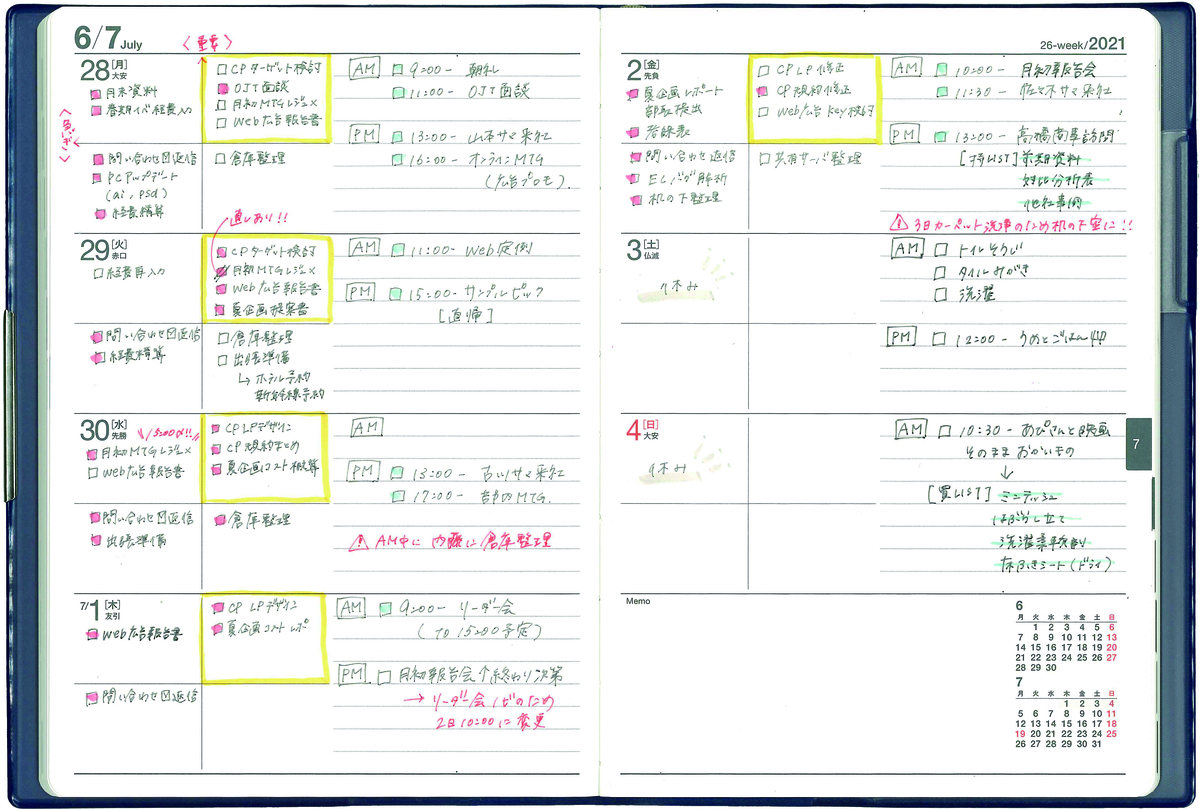 6/7 July
〈重要〉
〈急ぎ〉
28 [月]
大安
□月末資料
□春期イベ経費入力
□CPターゲット検討
□OJT面談
□月初MTGレジュメ
□Web広告報告書
AM □9:00- 朝礼
□11:00- OJT面談
PM □13:00- 山本サマ来社
□16:00- オンラインMTG
(広告プロモ).
□問い合わせ〆返信
□PCアップデート
(ai, psd)
□経費精算
□倉庫整理
直しあり!!
29 [火]
赤口
□経費再入力
□CPターゲット検討
□月初MTGレジュメ
□Web広告報告書
□夏企画提案書
AM □11:00- Web定例
PM □15:00- サンプルピック
[直帰]
□問い合わせ〆返信
□経費精算
□倉庫整理
□出張準備
↳ホテル予約
新幹線予約
30 [水]
先勝
\\13:00〆!!//
□月初MTGレジュメ
□Web広告報告書
□CP LPデザイン
□CP規約まとめ
□夏企画コスト概算
AM
PM □13:00- 古川サマ来社
□17:00- 部内MTG.
□問い合わせ〆返信
□出張準備
□倉庫整理
⚠AM中に内藤に倉庫整理
7/1 [木]
友引
□Web広告報告書
□CP LPデザイン
□夏企画コストレポ
AM □9:00- リーダー会
(TO 15:00予定)
PM □月初報告会↑終わり次第
→リーダー会ノビのため
2日10:00に変更
□問い合わせ〆返信
26-week/2021
2 [金]
先負
□夏企画レポート
部長提出
□CP LP修正
□CP規約修正
□Web広告key検討
AM □10:00- 月初報告会
□11:30- 佐々木サマ来社
PM □13:00- 高橋商事訪問
[持LIST] 前期資料
対比分析表
他社事例
□問い合わせ返信
□ECバグ解析
□机の下整理
□共有サーバ整理
⚠3日カーペット洗浄のため机の下空に!!
3 [土]
仏滅
休み
AM □トイレそうじ
□タイルみがき
□洗濯
PM □12:00- うめとごはん
4 [日]
大安
休み
AM □10:30- あぴさんと映画
そのままおかいもの
↓
[買LIST] ミニティッシュ
洗濯
床ふきシート(ドライ)
7
Memo
6
月 火 水 木 金 土 日
1 2 3 4 5 6
7 8 9 10 11 12 13
14 15 16 17 18 19 20
21 22 23 24 25 26 27
28 29 30
7
月 火 水 木 金 土 日
1 2 3 4
5 6 7 8 9 10 11
12 13 14 15 16 17 18
19 20 21 22 23 24 25
26 27 28 29 30 31